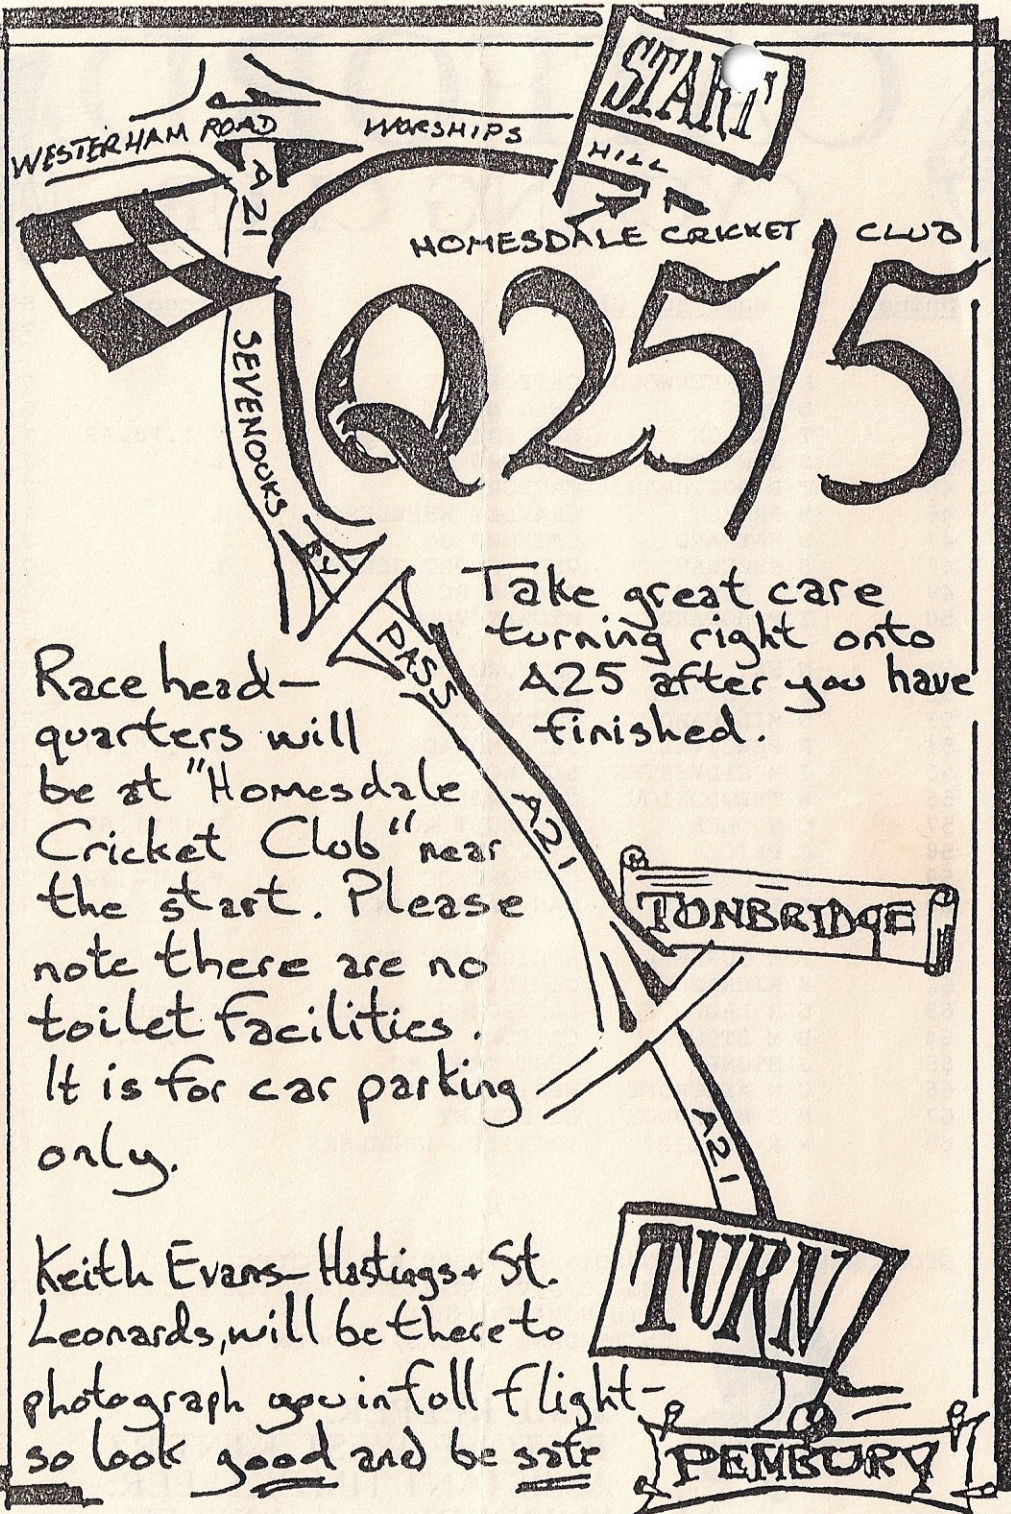 START
WESTERHAM ROAD
WORSHIPS
HILL
A21
HOMESDALE CRICKET CLUB
Q25/5
SEVENOOKS
BY
PASS
Take great care
turning right onto
A25 after you have
finished.
Race head-
quarters will
be at "Homesdale
Cricket Club" near
the start. Please
note there are no
toilet facilities.
It is for car parking
only.
A21
TONBRIDGE
A21
TURN
Keith Evans-Hastings + St.
Leonards, will be there to
photograph you in full flight-
so look good and be safe
PEMBURY